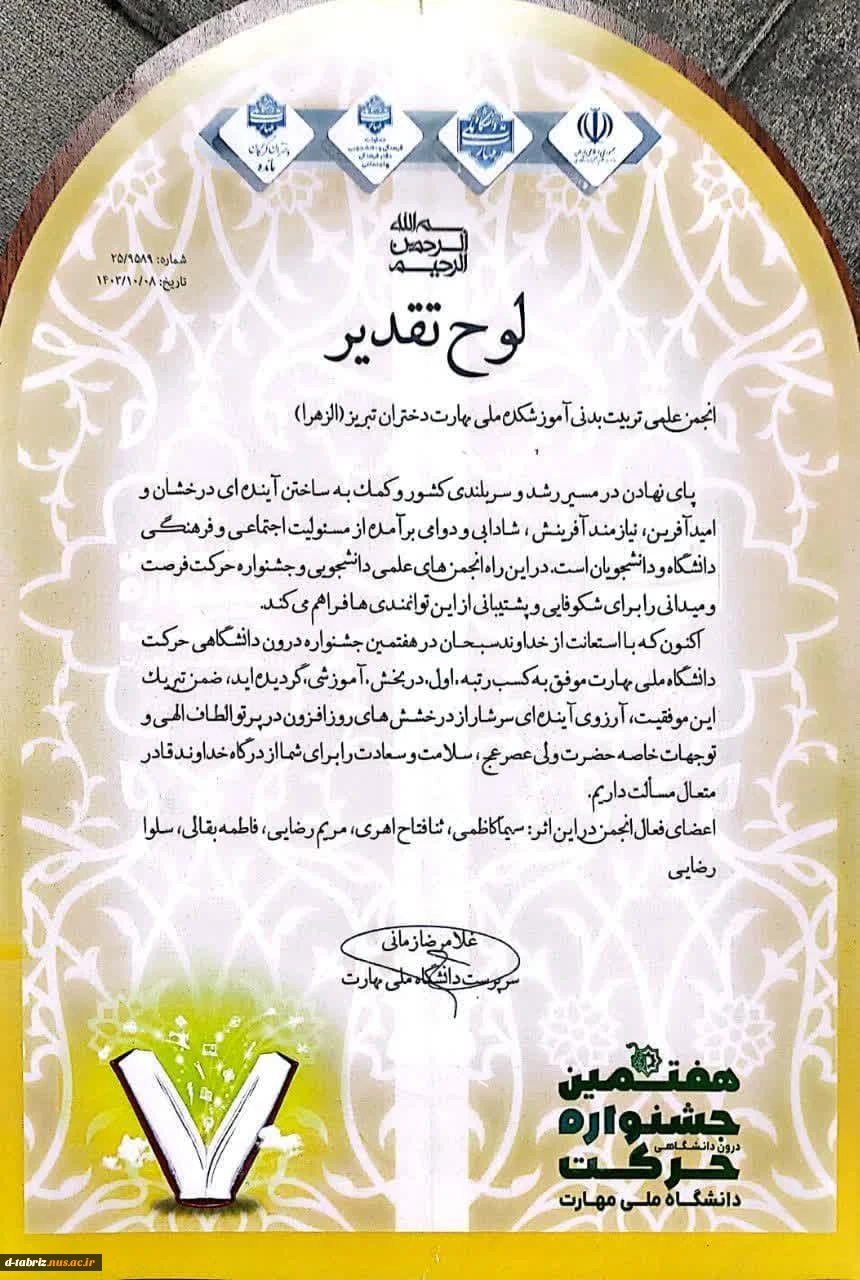 جمهوری اسلامی ایران
دختران آفتاب
بسم الله
الرحمن
الرحیم
شماره: ۲۵/۹۵۸۹
تاریخ: ۱۴۰۳/۱۰/۰۸
لوح تقدیر
انجمن علمی تربیت بدنی آموزشکده ملی مهارت دختران تبریز (الزهرا)
پای نهادن در مسیر رشد و سربلندی کشور و کمك به ساختن آینده ای درخشان و
امیدآفرین، نیازمند آفرینش، شادابی و دوامی برآمده از مسئولیت اجتماعی و فرهنگی
دانشگاه و دانشجویان است. در این راه انجمن های علمی دانشجویی و جشنواره حرکت فرصت
و میدانی را برای شکوفایی و پشتیبانی از این توانمندی ها فراهم می کند.
اکنون که با استعانت از خداوند سبحان در هفتمین جشنواره درون دانشگاهی حرکت
دانشگاه ملی مهارت موفق به کسب رتبه، اول، در بخش، آموزشی، گردیده اید، ضمن تبریك
این موفقیت، آرزوی آینده ای سرشار از درخشش های روز افزون در پرتو الطاف الهی و
توجهات خاصه حضرت ولی عصر عج، سلامت و سعادت را برای شما از درگاه خداوند قادر
متعال مسألت داریم.
اعضای فعال انجمن در این اثر: سیما کاظمی، ثنا فتاح اهری، مریم رضایی، فاطمه بقالی، سلوا
رضایی
غلامرضا زمانی
سرپرست دانشگاه ملی مهارت
هفتمین
جشنواره
درون دانشگاهی
حرکت
دانشگاه ملی مهارت
d-tabriz.nus.ac.ir